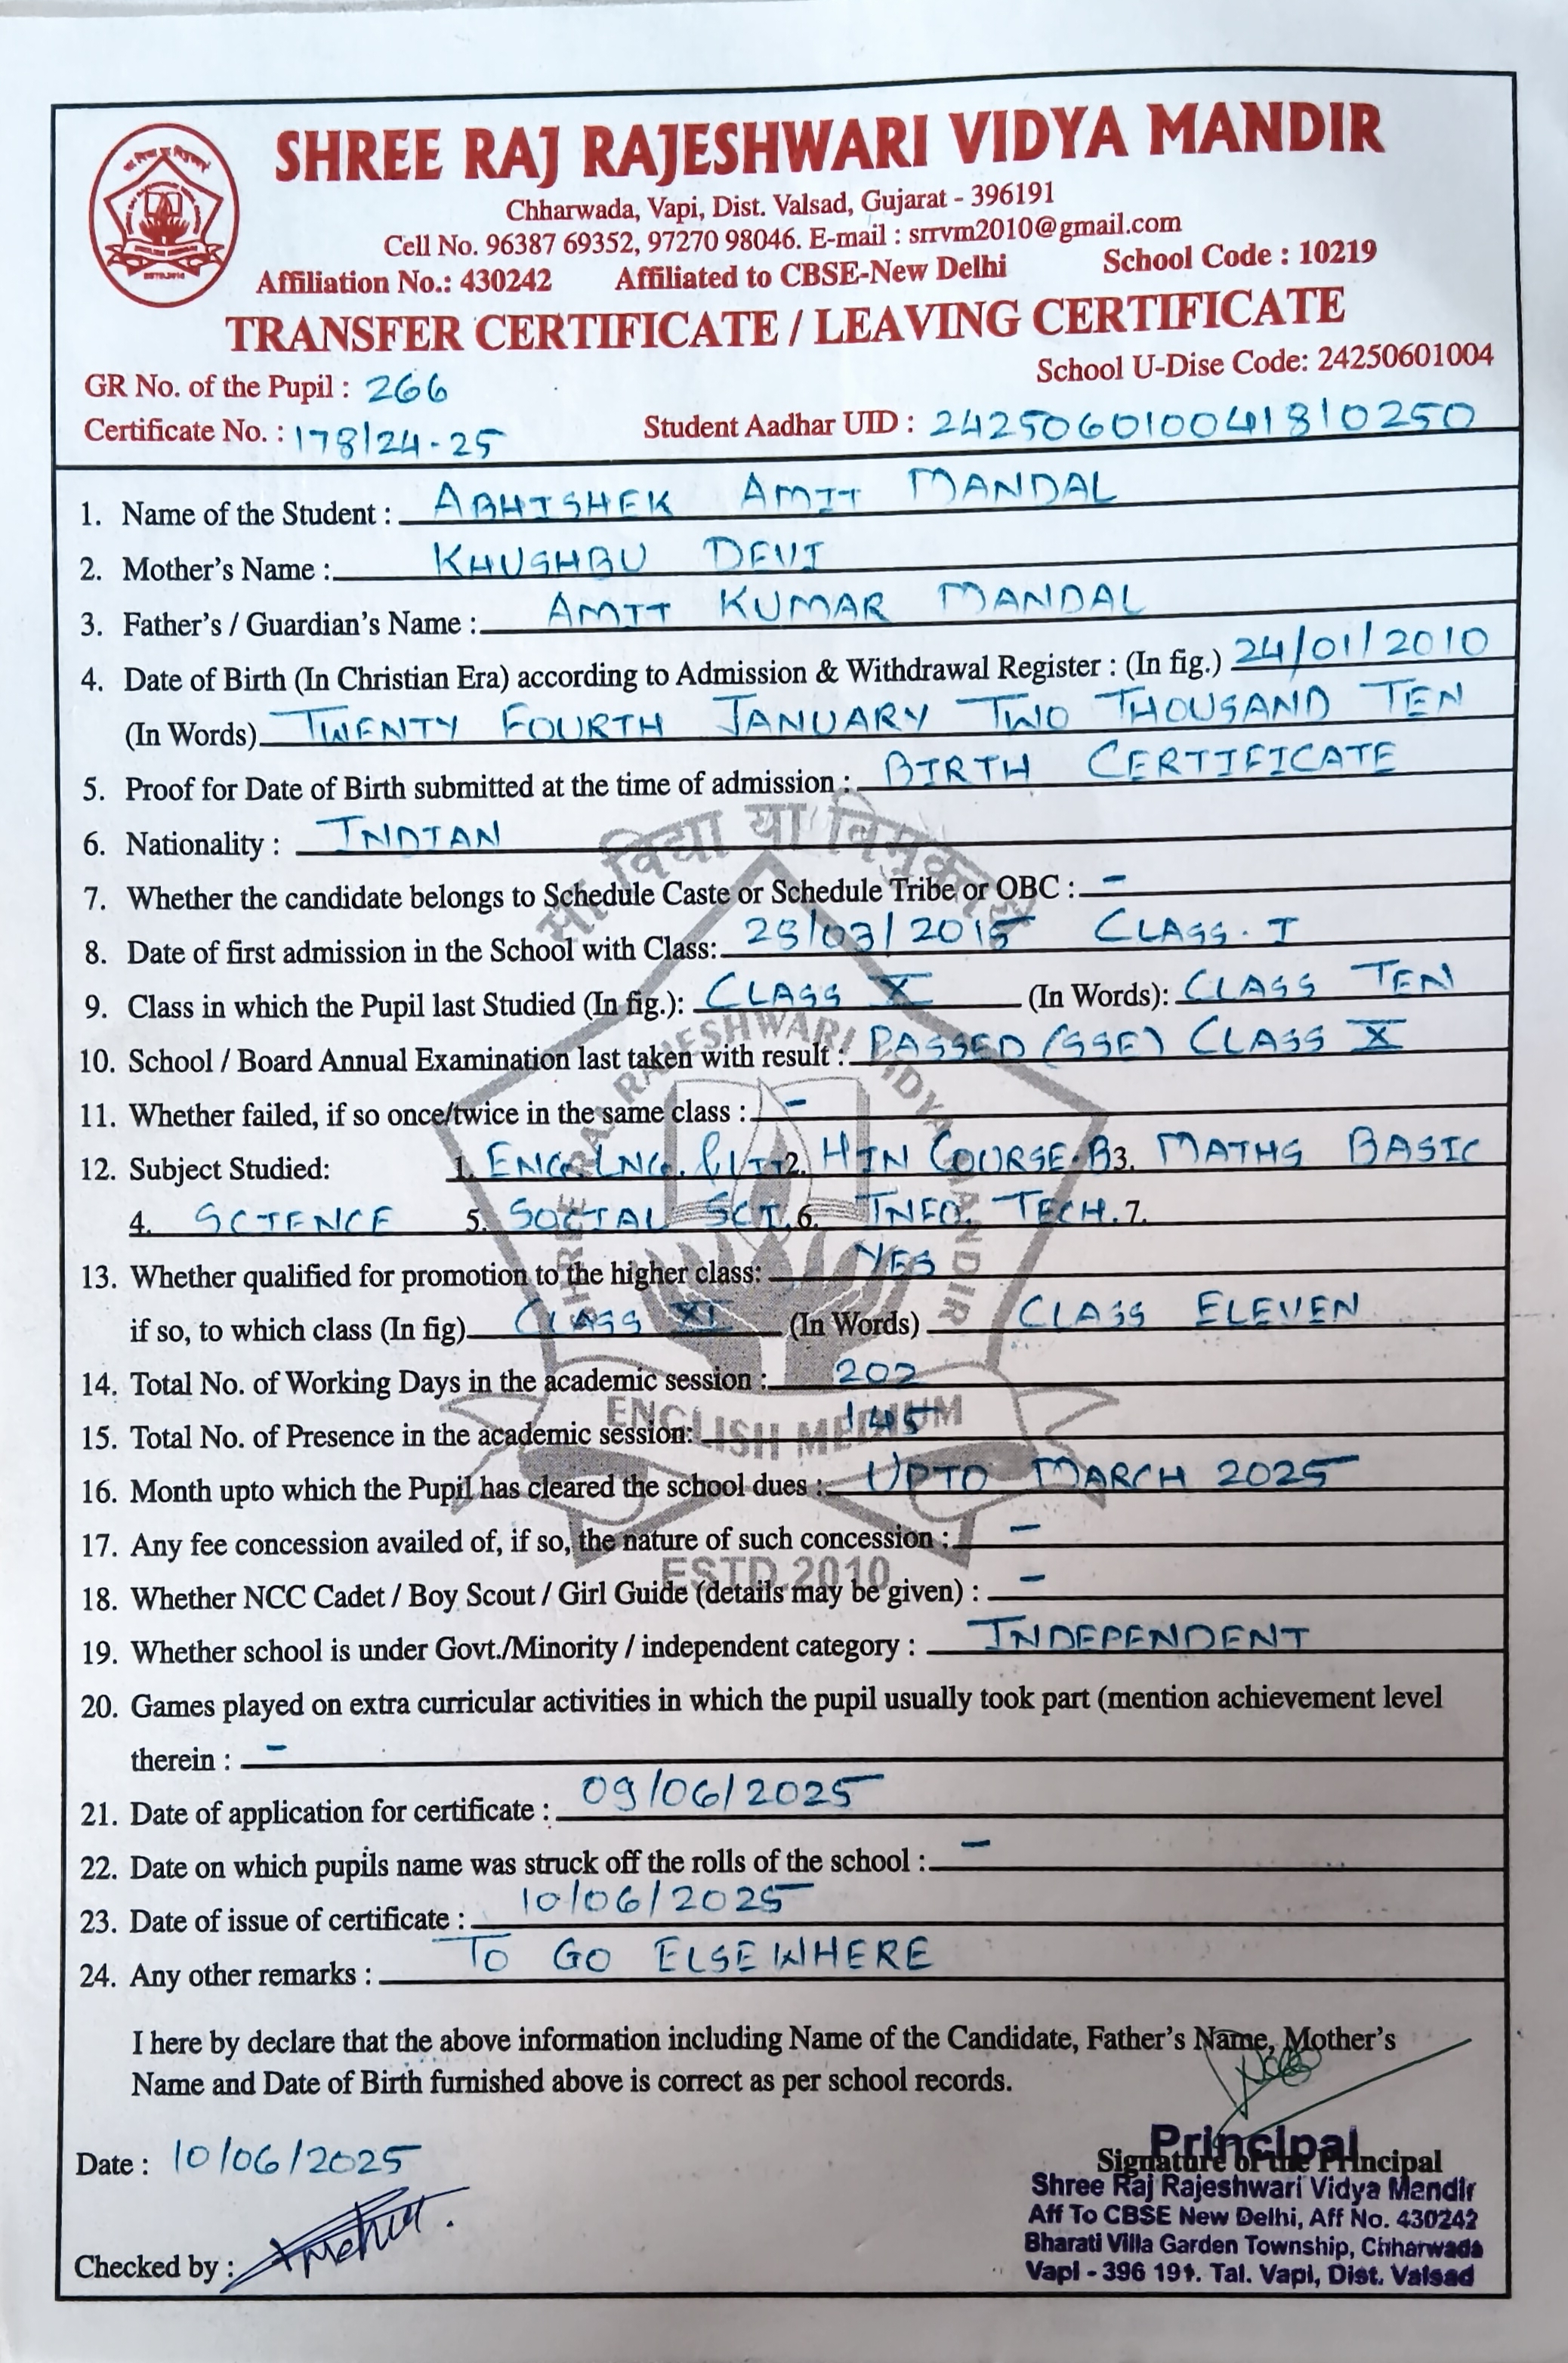 SHREE RAJ RAJESHWARI VIDYA MANDIR
Chharwada, Vapi, Dist. Valsad, Gujarat - 396191
Cell No. 96387 69352, 97270 98046. E-mail : srrvm2010@gmail.com
Affiliation No.: 430242 Affiliated to CBSE-New Delhi School Code : 10219
TRANSFER CERTIFICATE / LEAVING CERTIFICATE
School U-Dise Code: 24250601004
GR No. of the Pupil : 266
Certificate No. : 178/24-25 Student Aadhar UID : 242506010041810250
1. Name of the Student : ABHISHEK AMIT MANDAL
2. Mother's Name : KHUSHBU DEVI
3. Father's / Guardian's Name : AMIT KUMAR MANDAL
4. Date of Birth (In Christian Era) according to Admission & Withdrawal Register : (In fig.) 24/01/2010
(In Words) TWENTY FOURTH JANUARY TWO THOUSAND TEN
5. Proof for Date of Birth submitted at the time of admission : BIRTH CERTIFICATE
6. Nationality : INDIAN
मा विद्या या विमुक्तये
7. Whether the candidate belongs to Schedule Caste or Schedule Tribe or OBC : -
8. Date of first admission in the School with Class: /03/2015 CLASS. I
9. Class in which the Pupil last Studied (In fig.): CLASS X (In Words): CLASS TEN
SHREE RAJ RAJESHWARI VIDYA MANDIR
10. School / Board Annual Examination last taken with result : PASSED (SSE) CLASS X
11. Whether failed, if so once/twice in the same class : -
12. Subject Studied: 1. ENG. LNG. & LIT 2. HIN COURSE-B 3. MATHS BASIC
4. SCIENCE 5. SOCIAL SCI. 6. INFO. TECH. 7.
13. Whether qualified for promotion to the higher class: YES
if so, to which class (In fig) CLASS XI (In Words) CLASS ELEVEN
14. Total No. of Working Days in the academic session : 202
ENGLISH MEDIUM
15. Total No. of Presence in the academic session: 145
16. Month upto which the Pupil has cleared the school dues : UPTO MARCH 2025
17. Any fee concession availed of, if so, the nature of such concession : -
ESTD.2010
18. Whether NCC Cadet / Boy Scout / Girl Guide (details may be given) : -
19. Whether school is under Govt./Minority / independent category : INDEPENDENT
20. Games played on extra curricular activities in which the pupil usually took part (mention achievement level
therein : -
21. Date of application for certificate : 09/06/2025
22. Date on which pupils name was struck off the rolls of the school : -
23. Date of issue of certificate : 10/06/2025
24. Any other remarks : TO GO ELSEWHERE
I here by declare that the above information including Name of the Candidate, Father's Name, Mother's
Name and Date of Birth furnished above is correct as per school records.
Date : 10/06/2025
Principal
Signature of the Principal
Shree Raj Rajeshwari Vidya Mandir
Aff To CBSE New Delhi, Aff No. 430242
Bharati Villa Garden Township, Chharwada
Vapi - 396 191. Tal. Vapi, Dist. Valsad
Checked by :